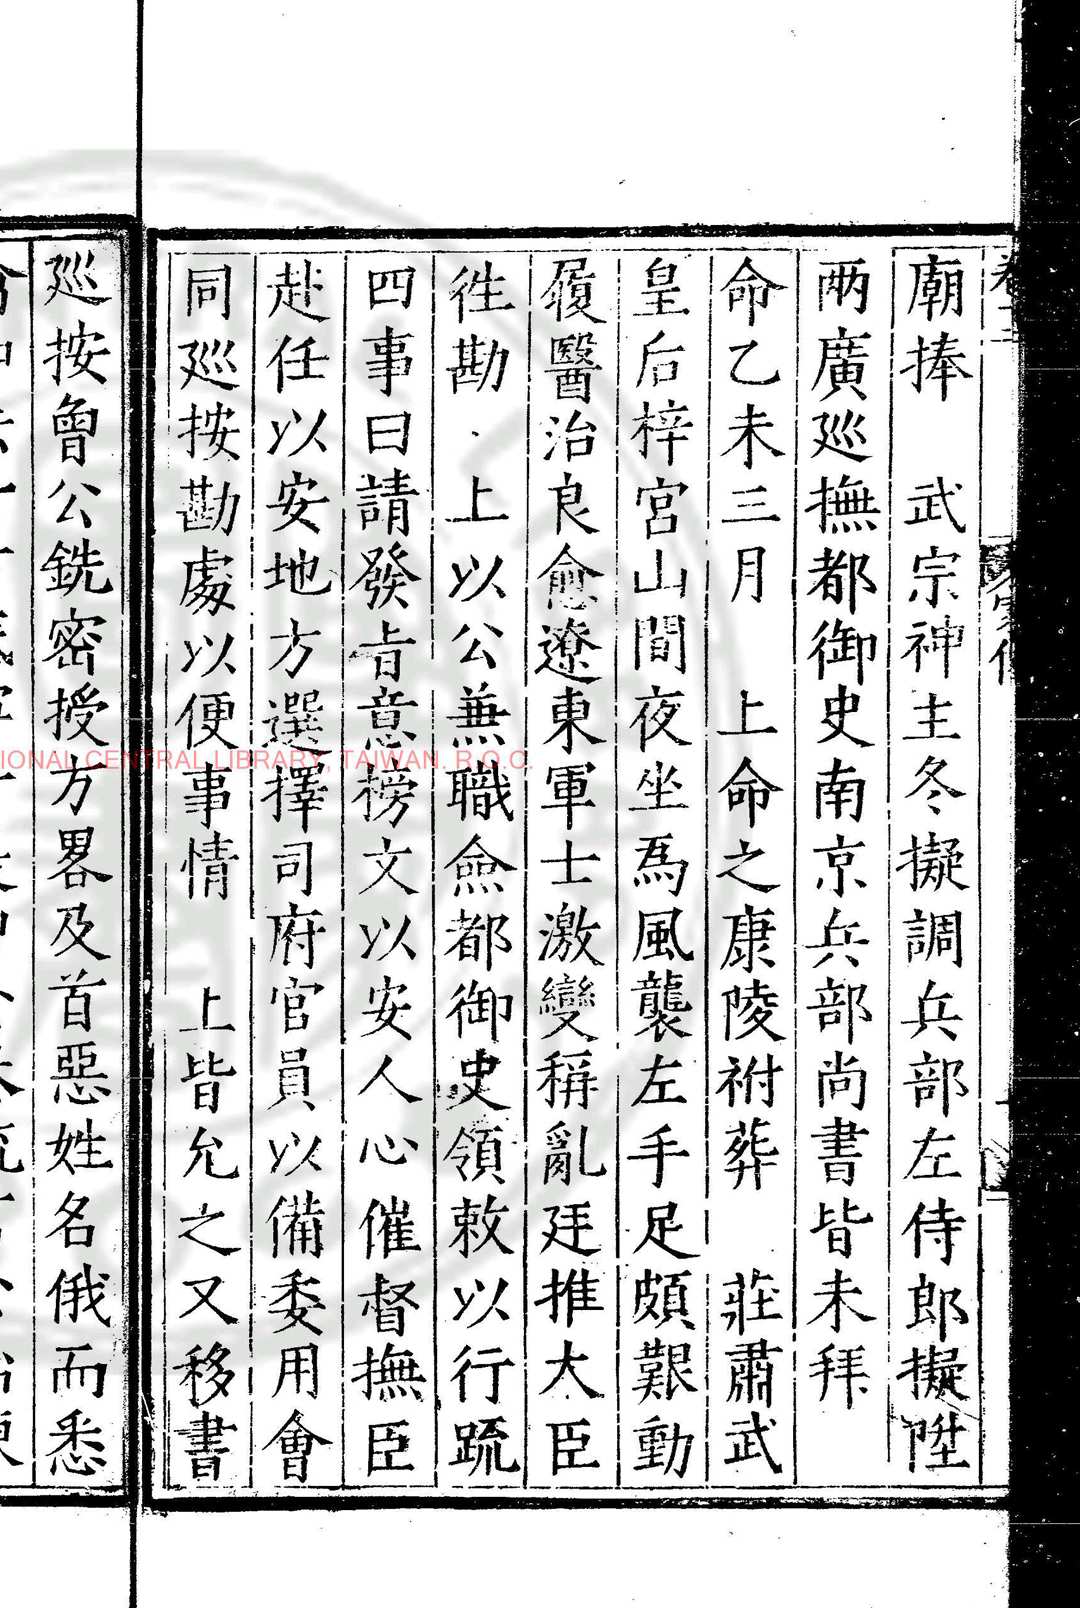 廟捧　武宗神主冬擬調兵部左侍郎擬陞
兩廣廵撫都御史南京兵部尚書皆未拜
命乙未三月　上命之康陵祔葬　莊肅武
皇后梓宮山間夜坐爲風襲左手足頗艱動
履醫治良愈遼東軍士激變稱亂廷推大臣
徃勘　上以公兼職僉都御史領敕以行䟽
四事曰請發旨意榜文以安人心催督撫臣
赴任以安地方選擇司府官員以備委用會
同廵按勘處以便事情　上皆允之又移書
廵按曾公銑密授方畧及首惡姓名俄而悉
NATIONAL CENTRAL LIBRARY, TAIWAN. R.O.C.